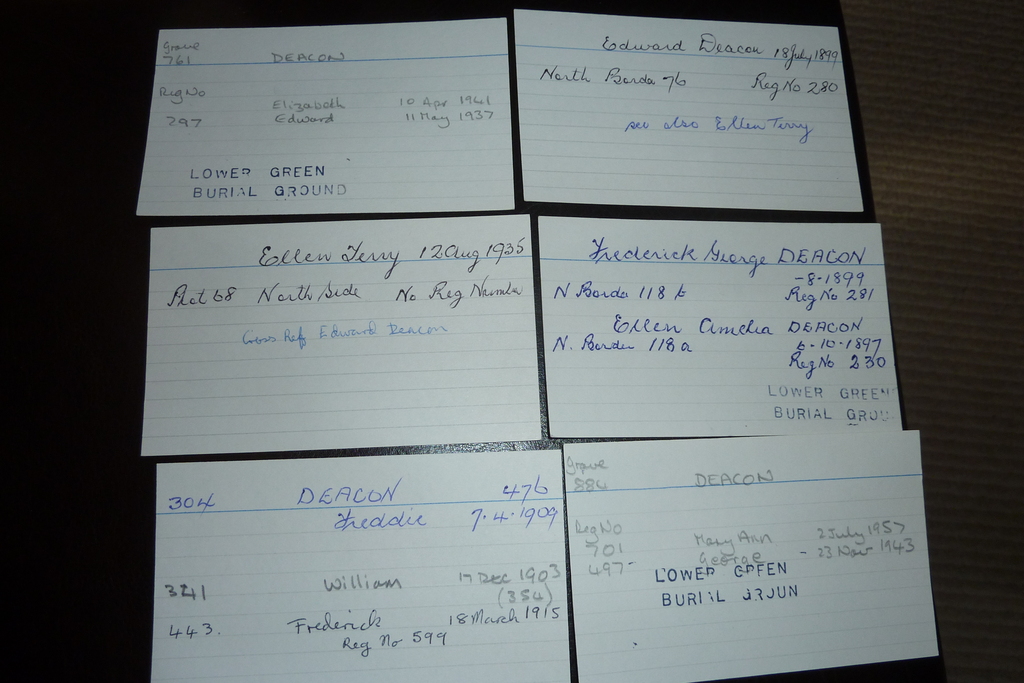 Grave
761 DEACON
Reg No
Elizabeth 10 Apr 1941
297 Edward 11 May 1937
LOWER GREEN
BURIAL GROUND
Edward Deacon 18 July 1899
North Borda 76 Reg No 280
see also Ellen Terry
Ellen Terry 12 Aug 1935
Plot 68 North Side No Reg Number
Cross Ref Edward Deacon
Frederick George DEACON
-8-1899
N Borda 118 b Reg No 281
Ellen Amelia DEACON
N. Border 118a 6-10-1897
Reg No 230
LOWER GREEN
BURIAL GROU
304 DEACON 476
Freddie 7.4.1909
321 William 17 Dec 1903
(354)
443. Frederick 18 March 1915
Reg No 599
Grave
884 DEACON
Reg No
701 Mary Ann 2 July 1957
497- George - 23 Nov 1943
LOWER GREEN
BURIAL GROUN